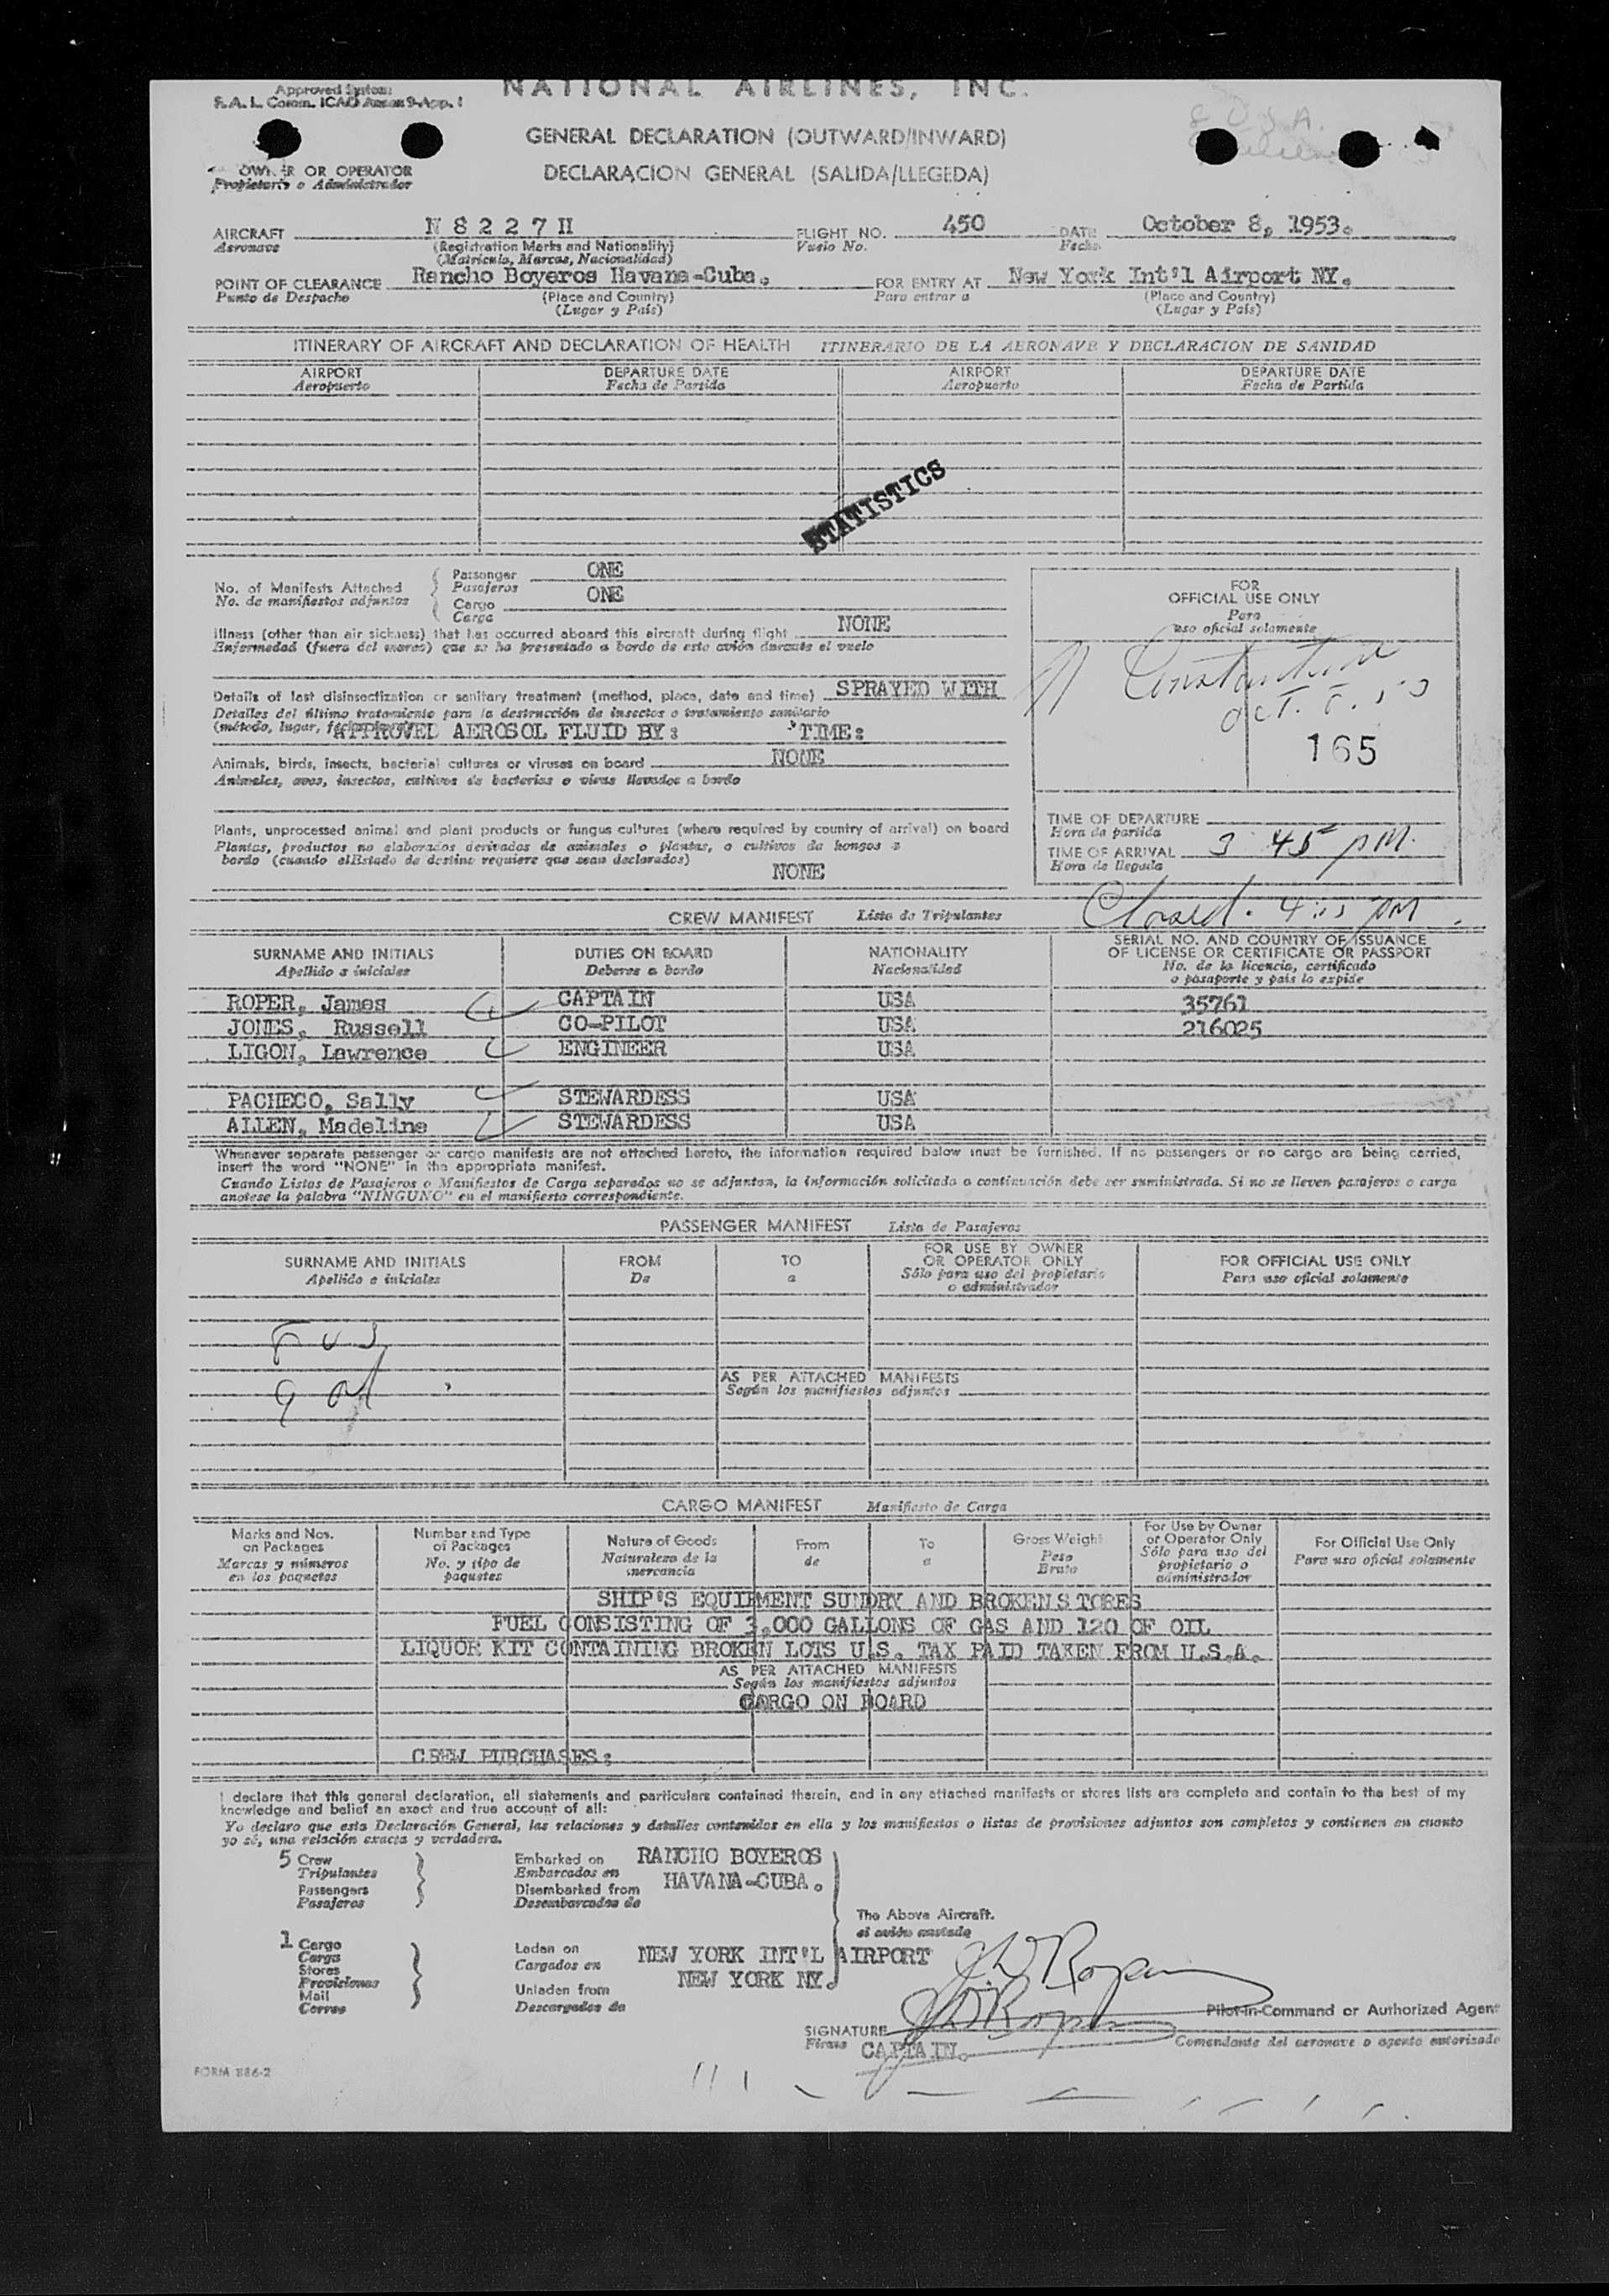 Approved System
F.A.L. Comm. ICAO Annex 9-App. 1
NATIONAL AIRLINES, INC.
GENERAL DECLARATION (OUTWARD/INWARD)
DECLARACION GENERAL (SALIDA/LLEGEDA)
OWNER OR OPERATOR
Propietario o Administrador
AIRCRAFT N 8 2 2 7 H FLIGHT NO. 450 DATE October 8, 1953.
Aeronave (Registration Marks and Nationality) Vuelo No. Fecha
(Matricula, Marcas, Nacionalidad)
POINT OF CLEARANCE Rancho Boyeros Havana-Cuba. FOR ENTRY AT New York Int'l Airport NY.
Punto de Despacho (Place and Country) Para entrar a (Place and Country)
(Lugar y País) (Lugar y País)
ITINERARY OF AIRCRAFT AND DECLARATION OF HEALTH ITINERARIO DE LA AERONAVE Y DECLARACION DE SANIDAD
AIRPORT DEPARTURE DATE AIRPORT DEPARTURE DATE
Aeropuerto Fecha de Partida Aeropuerto Fecha de Partida
STATISTICS
No. of Manifests Attached
No. de manifiestos adjuntos
Passenger ONE
Pasajeros
Cargo ONE
Carga
Illness (other than air sickness) that has occurred aboard this aircraft during flight NONE
Enfermedad (fuera del mareo) que se ha presentado a bordo de este avión durante el vuelo
Details of last disinsectization or sanitary treatment (method, place, date and time) SPRAYED WITH
Detalles del último tratamiento para la destrucción de insectos o tratamiento sanitario
(método, lugar,
APPROVED AEROSOL FLUID BY: TIME:
Animals, birds, insects, bacterial cultures or viruses on board NONE
Animales, aves, insectos, cultivos de bacterias o virus llevados a bordo
Plants, unprocessed animal and plant products or fungus cultures (where required by country of arrival) on board
Plantas, productos no elaborados derivados de animales o plantas, o cultivos de hongos a
bordo (cuando elEstado de destino requiere que sean declarados)
NONE
FOR
OFFICIAL USE ONLY
Para
uso oficial solamente
165
TIME OF DEPARTURE
Hora de partida
TIME OF ARRIVAL 3 45 PM.
Hora de llegada
Closed.
CREW MANIFEST Lista de Tripulantes
SURNAME AND INITIALS DUTIES ON BOARD NATIONALITY SERIAL NO. AND COUNTRY OF ISSUANCE
OF LICENSE OR CERTIFICATE OR PASSPORT
Apellido e iniciales Deberes a bordo Nacionalidad No. de la licencia, certificado
o pasaporte y país lo expide
ROPER, James CAPTAIN USA 35761
JONES, Russell CO-PILOT USA 216025
LIGON, Lawrence ENGINEER USA
PACHECO, Sally STEWARDESS USA
ALLEN, Madeline STEWARDESS USA
Whenever separate passenger or cargo manifests are not attached hereto, the information required below must be furnished. If no passengers or no cargo are being carried,
insert the word "NONE" in the appropriate manifest.
Cuando Listas de Pasajeros o Manifiestos de Carga separados no se adjuntan, la información solicitada a continuación debe ser suministrada. Si no se lleven pasajeros o carga
anotese la palabra "NINGUNO" en el manifiesto correspondiente.
PASSENGER MANIFEST Lista de Pasajeros
SURNAME AND INITIALS FROM TO FOR USE BY OWNER
OR OPERATOR ONLY FOR OFFICIAL USE ONLY
Apellido e iniciales De a Sólo para uso del propietario
o administrador Para uso oficial solamente
AS PER ATTACHED MANIFESTS
Según los manifiestos adjuntos
CARGO MANIFEST Manifiesto de Carga
Marks and Nos.
on Packages
Marcas y números
en los paquetes
Number and Type
of Packages
No. y tipo de
paquetes
Nature of Goods
Naturaleza de la
mercancia
From
de
To
a
Gross Weight
Peso
Bruto
For Use by Owner
or Operator Only
Sólo para uso del
propietario o
administrador
For Official Use Only
Para uso oficial solamente
SHIP'S EQUIPMENT SUNDRY AND BROKENSTORES
FUEL CONSISTING OF 3,000 GALLONS OF GAS AND 120 OF OIL
LIQUOR KIT CONTAINING BROKEN LOTS U.S. TAX PAID TAKEN FROM U.S.A.
AS PER ATTACHED MANIFESTS
Según los manifiestos adjuntos
CARGO ON BOARD
CREW PURCHASES:
I declare that this general declaration, all statements and particulars contained therein, and in any attached manifests or stores lists are complete and contain to the best of my
knowledge and belief an exact and true account of all:
Yo declaro que esta Declaración General, las relaciones y detalles contenidos en ella y los manifiestos o listas de provisiones adjuntos son completos y contienen en cuanto
yo sé, una relación exacta y verdadera.
5 Crew
Tripulantes
Passengers
Pasajeros
Embarked on RANCHO BOYEROS
Embarcados en HAVANA-CUBA.
Disembarked from
Desembarcados de
The Above Aircraft.
el avión anotado
1 Cargo
Carga
Stores
Provisiones
Mail
Correo
Laden on NEW YORK INT'L AIRPORT
Cargados en NEW YORK NY.
Unladen from
Descargados de
Pilot-in-Command or Authorized Agent
SIGNATURE
Firma CAPTAIN. Comandante del aeronave o agente autorizado
FORM 886-2